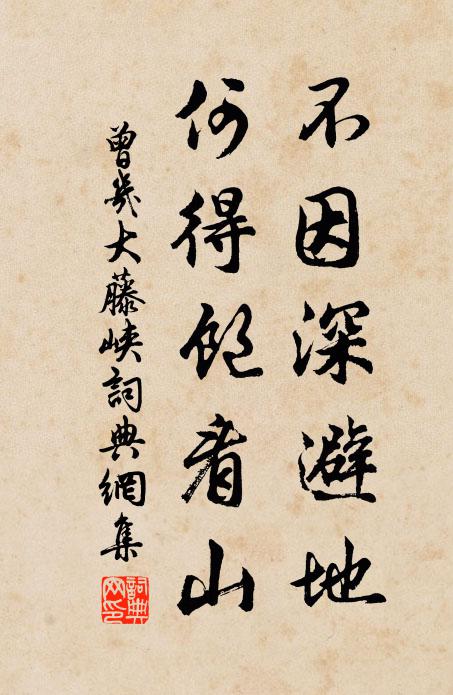 不因深避地
何得飽看山
曾幾大藤峽詞典網集
詞典網印